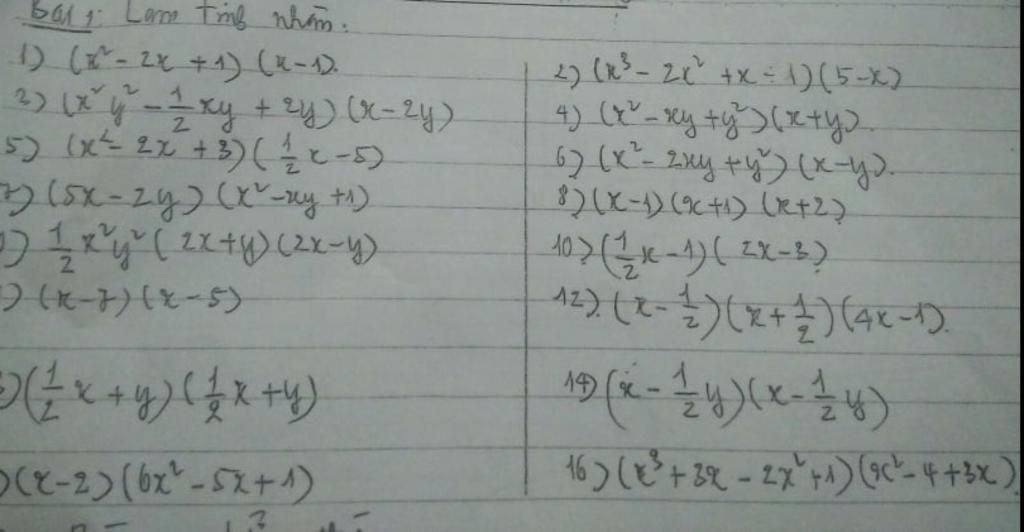 Bài 1: Làm tính nhân:
1) (x² - 2x + 1) (x-1).
2) (x³ - 2x² + x - 1) (5-x)
3) (x²y² - 1/2 xy + 2y) (x - 2y)
4) (x² - xy + y²) (x+y).
5) (x² - 2x + 3) (1/2 x - 5)
6) (x² - 2xy + y²) (x-y).
7) (5x - 2y) (x² - xy + 1)
8) (x-1) (x+1) (x+2)
) 1/2 x²y² (2x+y) (2x-y)
10) (1/2 x - 1) (2x-3)
) (x-7) (x-5)
12). (x - 1/2) (x + 1/2) (4x-1).
) (1/2 x + y) (1/2 x + y)
14) (x - 1/2 y) (x - 1/2 y)
) (x-2) (6x² - 5x + 1)
16) (x³ + 3x - 2x² + 1) (x² - 4 + 3x)